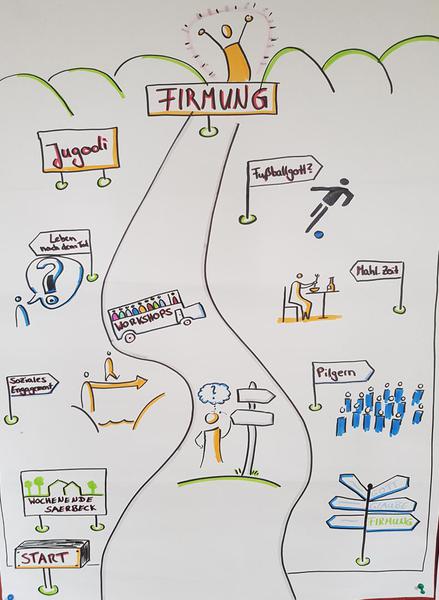 FIRMUNG
Jugodi
Fußballgott?
Leben
nach dem Tod
?
Mahl Zeit
WORKSHOPS
Soziales
Engagement
?
Pilgern
WOCHENENDE
SAERBECK
GOTT
GLAUBE
FIRMUNG
START